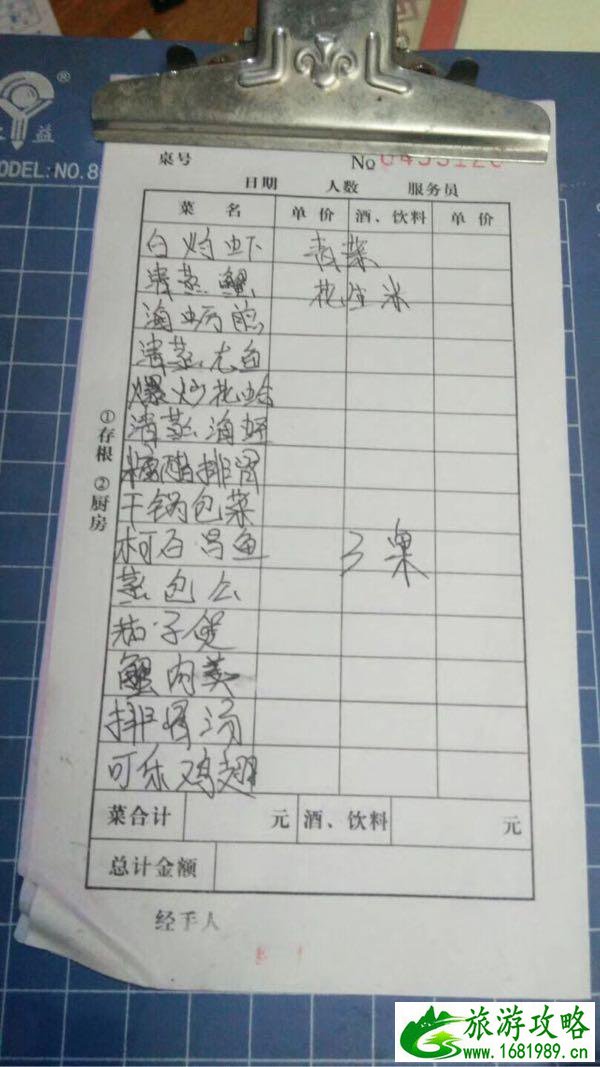 益 ®
MODEL:NO.8
桌号 No 0455120
日期 人数 服务员
菜 名 单 价 酒、饮料 单 价
白灼虾 青菜
清蒸蟹 花生米
海蛎煎
清蒸尤鱼
爆炒花蛤
清蒸海虾
糖醋排骨
干锅包菜
3桌
石 鱼
蒸包公
茄子煲
蟹肉羹
排骨汤
可乐鸡翅
①存根 ②厨房
菜合计 元 酒、饮料 元
总计金额
经手人
旅游攻略
www.1681989.cn